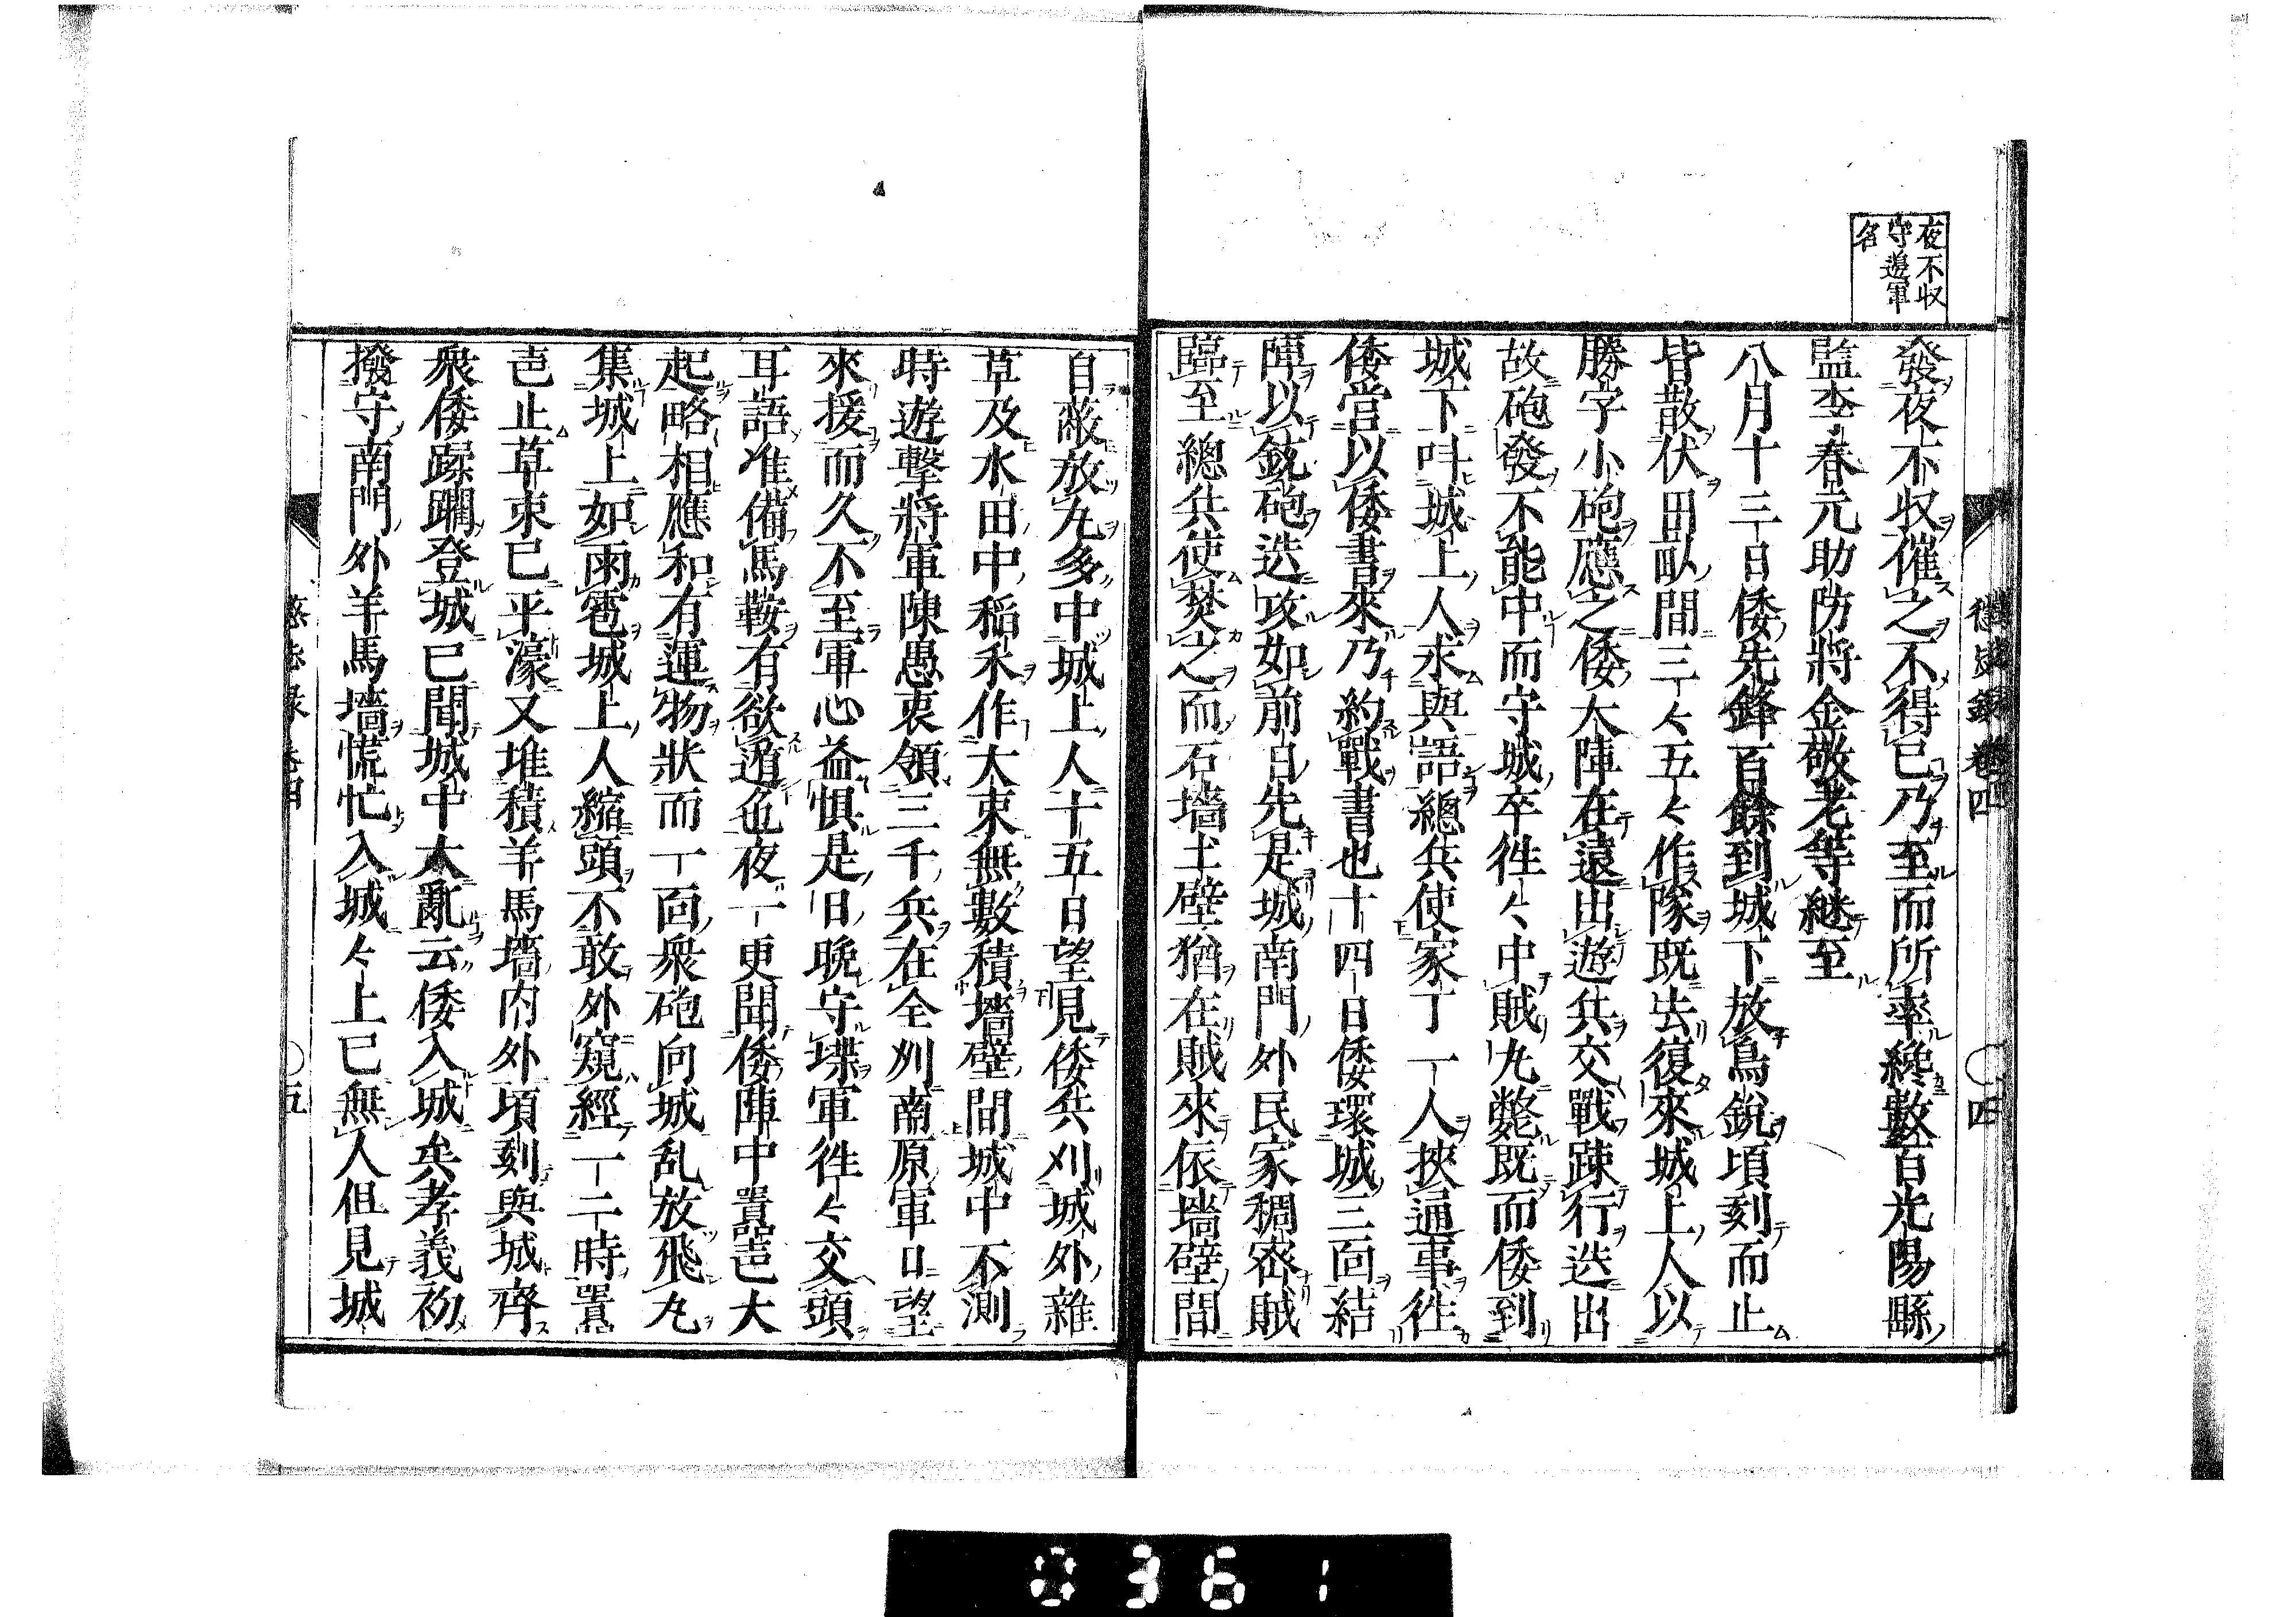 夜不収
守邊軍
名
發夜不收催之不得已乃至而所率纔數百光陽縣
監李春元助防將金敬老等継至
八月十三日倭先鋒百餘到城下放鳥銃頃刻而止
皆散伏田畝間三々五々作隊既去復來城上人以
勝字小砲應之倭大陣在遠出遊兵交戰疎行迭出
故砲發不能中而守城卒徃々中賊丸斃既而倭到
城下呌城上人求與語總兵使家丁一人挾通事徃
倭営以倭書來乃約戰書也十四日倭環城三面結
陣以銃砲迭攻如前日先是城南門外民家稠密賊
臨至總兵使焚之而石墻土壁猶在賊來依墻壁間
懲毖録 卷四 〇四
自蔽放丸多中城上人十五日望見倭兵刈城外雜
草及水田中稲禾作大束無數積墻壁間城中不測
時遊擊將軍陳愚衷領三千兵在全州南原軍日望
來援而久不至軍心益惧是日晩守堞軍徃々交頭
耳語准備馬鞍有欲遁色夜一更聞倭陣中囂㠯大
起略相應和有運物狀而一面衆砲向城乱放飛丸
集城上如雨雹城上人縮頭不敢外窺經一二時囂
㠯止草束已平濠又堆積羊馬墻内外頃刻與城齊
衆倭蹂躙登城已聞城中大亂云倭入城矣孝義初
撥守南門外羊馬墻慌忙入城々上已無人但見城
懲毖録 卷四 〇五
0361